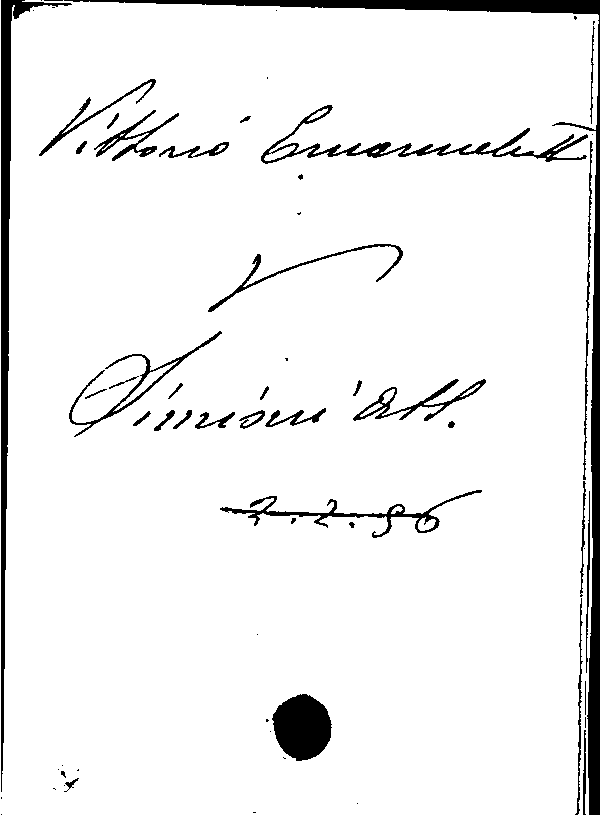 Vittorio Emanuele II
V
Simioni Att.
2.2.96